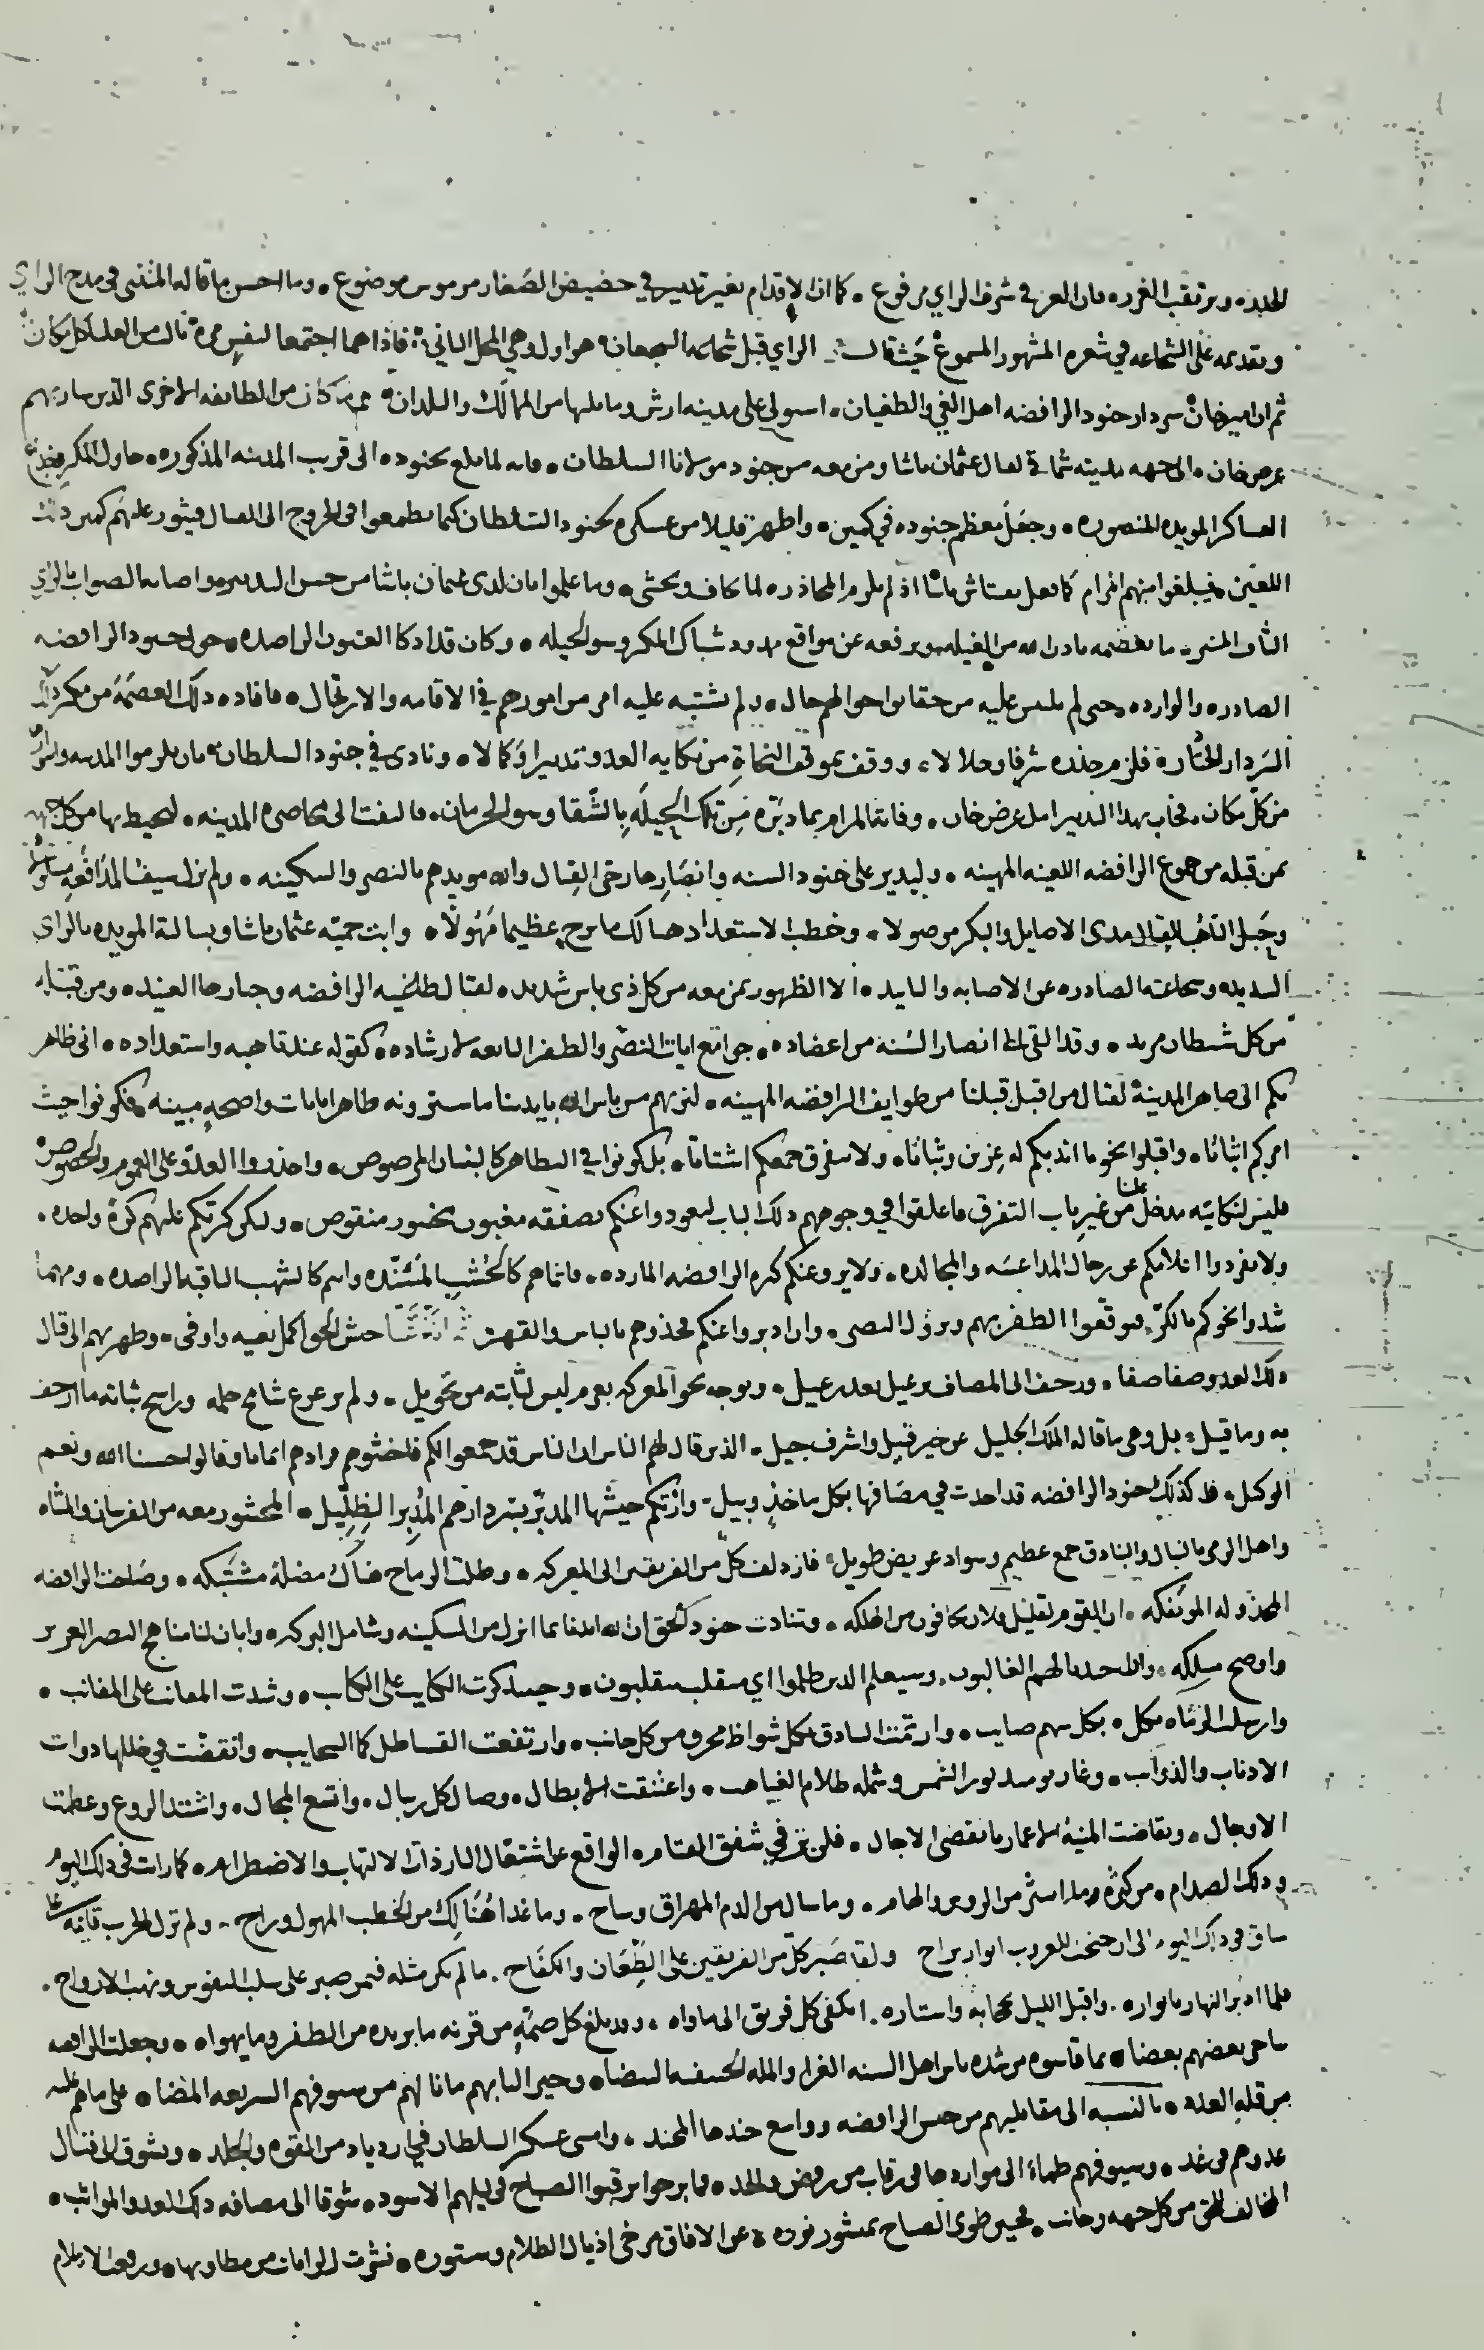 الحيد، ويرتقب الغره، فان العز في شرف الراي مرفوع، كما ان الاقدام بغير تدبير في حضيض الصغار مرموس موضوع، وما احسن ما قاله المتنبي في مدح الراي
وتقديمه على الشجاعه في شعره المشهور المسموع حيث قال: الراي قبل شجاعه الشجعان هو اول وهي المحل الثاني: فاذا هما اجتمعا لنفس مرة نالت من العليا كل مكان
ثم ان امير خان سردار جنود الرافضه اهل الغي والطغيان، استولى على مدينه ارش وما يليها من الممالك والبلدان، كان من الطائفه الاخرى الذين سار بهم
عرض خان، الى جهه مدينه شماخي لقتال عثمان باشا ومن معه من جنود مولانا السلطان، فانه لما بلغ بجنوده الى قريب المدينه المذكوره، حاول المكر
العساكر المويده المنصوره، وجعل معظم جنوده في كمين، واظهر قليلا من عسكره لجنود السلطان كيما يطمعوا في الخروج الى القتال فيثور عليهم كمين ذلك
اللعين فيبلغوا منهم المرام كما فعل باشا اذ لم يلزم المحاذره لما يخاف ويخشى، وما علموا بان لدى عثمان باشا من حسن التدبير واصابه الصواب بالراي
الثاقب المنير، ما يعصمه باذن الله من الغيله ويرفعه عن مواقع مدود شباك المكر وسو الحيله، وكان قد اذكا العيون الراصده، حول جنود الرافضه
الصادره والوارده، حتى لم يلتبس عليه من حقائق احوالهم حال، ولم يشتبه عليه امر من امورهم في الاقامه والارتحال، فافاده ذلك العصمة من مكر ذلك
السردار فلزم جنده شرفا وجلالا، ووقف بموقف النجاة من نكايه العدو تدبيرا وكمالا، ونادى في جنود السلطان بان يلزموا المدينه
من كل مكان، فخاب بهذا التدبير امل عرض خان، وفاته المرام بما دبره من تلك الحيله بالشقا وسو الحرمان، فالتفت الى محاصره المدينه، ليحيط بها من كل جهه
بمن قبله من جموع الرافضه اللعينه المهينه، وليدير على جنود السنه وانصارها رحى القتال والله مويدهم بالنصر والسكينه، ولم يزل سيف المدافعه
وحبل التاهب للقتال مدى الاصايل والبكر موصولا، وخطب الاستعداد هنالك ما برح عظيما مهولا، وابت حميه عثمان باشا وبسالته المويده بالراي
السديد، وشجاعته الصادره عن الاصابه والتاييد، الا الظهور بمن معه من كل ذي باس شديد، لقتال طاغيه الرافضه وجبارها العنيد، ومن قبله
من كل شيطان مريد، وقد القى الى انصار السنه من اعضاده، جوامع ايات النصر والظفر التابعه لارشاده، كقوله عند تاهبه واستعداده، اني ظاهر
بكم الى ظاهر المدينة لقتال من اقبل قبلنا من طوايف الرافضه المهينه، لنريهم من باس الله بايدينا ما سترونه ظاهرا بايات واضحه مبينه، فكونوا حيث
امركم اثباتا، واقبلوا نحو ما اندبكم له عزين وثباتا، ولا يتفرق جمعكم اشتاتا، بل كونوا في التظاهر كالبنيان المرصوص، واحذروا العدو على العموم والخصوص
فليس لنكايته مدخل علينا من غير باب التفرق فاغلقوا في وجوههم ذلك الباب ليعودوا عنكم بصفقه مغبون بخسور منقوص، ولتكن كرتكم تلهم كرة واحده،
ولا تفردوا افلاذكم عن رجال المداعسه والمجالده، ولا يروعنكم كثره الرافضه المارده، فانما هم كالخشب المسنده وانتم كالشهب الثاقبه الراصده، ومهما
شدوا نحوكم بالكر، فتوقعوا الظفر بهم ونزول النصر، وان ادبروا عنكم فخذوهم بالباس والقهر حث الجوا كمل تعبيه واوفى، وظهر بهم الى قتال
ذلك العدو صفا صفا، وزحف الى المصاف برعيل بعد رعيل، وتوجه نحو المعركه بعزم ليس لثابته من تحويل، ولم يزعزع شامخ حلمه وراسخ ثباته ما ارجف
به وما قيل، بل وعى ما قاله الملك الجليل عن خير قبيل واشرف جيل، الذين قال لهم الناس ان الناس قد جمعوا لكم فاخشوهم فزادهم ايمانا وقالوا حسبنا الله ونعم
الوكيل، كذلك جنود الرافضه قد اخذت في مصافها بكل ماخذ وبيل، وانتكم حيثها المدبر سردارهم المدبر الضليل، المحشور معه من الفرسان والمشاه
واهل الرمي بالنبال والبنادق جمع عظيم وسواد عريض طويل، فازدلف كل من الفريقين الى المعركه، وظلت الرماح هناك متصلة مشتبكه، وصاحت الرافضه
المخذوله الموتفكه، ان القوم لقليل فلا يخافون من الهلكه، وتنادت جنود الحق ان الله امدنا بما انزل من السكينه وشامل البركه، وابان لنا مناهج النصر العزيز
واوضح مسلكه، وان جندنا لهم الغالبون، وسيعلم الذين ظلموا اي منقلب ينقلبون، وحينئذ كرت الكتايب على الكتايب، وشدت المقانب على المقانب،
وارسلت الرماه بكل سهم صايب، وارتمت البنادق بكل شواظ محرق من كل جانب، وارتفعت القساطل كالسحايب، وانقضت في ظلمها ذوات
الاذناب والذوائب، وغار يوميذ نور الشمس وشمله ظلام الغياهب، واعتنقت الابطال، وصال كل ريبال، واتسع المجال، واشتد الروع وعظمت
الاوجال، وتقاضت المنية الاعمار بانقضى الاجال، فلن تر في شفق القتام، الواقع عن اشتعال النار ذات الالتهاب والاضطرام، كما رات في ذلك اليوم
وذلك الصدام، من كثرة وما انتثر من الروس والهام، وما سال من الدم المهراق وساح، وما غدا هنالك من الخطب المهول وراح، ولم تزل الحرب قائمه على
ساق في ذلك اليوم الى ان جنحت للغروب انوار براح، ولقد صبر كل من الفريقين على الطعان والكفاح، ما لم يكن مثله فيمن صبر على سلب النفوس ونهب الارواح،
فلما ادبر النهار بانواره، واقبل الليل بحجابه واستاره، انكفى كل فريق الى ماواه، وقد بلغ كل صمته من قرنه ما يريده من الظفر وما يهواه، وجعلت الرافضه
يناجي بعضهم بعضا، بما قاسوه من شده باس اهل السنه الغرا والمله الحنيفيه البيضا، وخير النبا بهم ما نالهم من سيوفهم السريعه المضا، على ما هم عليه
من قله العدد، بالنسبه الى مقابليهم من جيش الرافضه وواسع جندها المجند، وامسى عسكر السلطان في ازدياد من القوه والجلد، وتشوق الى قتال
عدوهم في غد، وسيوفهم ظماء الى مواردها في رقاب من رفض والحد، فما برحوا يرقبوا الصباح في ليلهم الاسود، شوقا الى مصافه ذلك العدو المواثب،
المخالف للحق من كل جهه وجانب، فحين طوى الصباح بمنشور نوره، عن الافاق مرخى اذيال الظلام وستوره، نشرت الرايات من مطاويها، ورفعت الاعلام